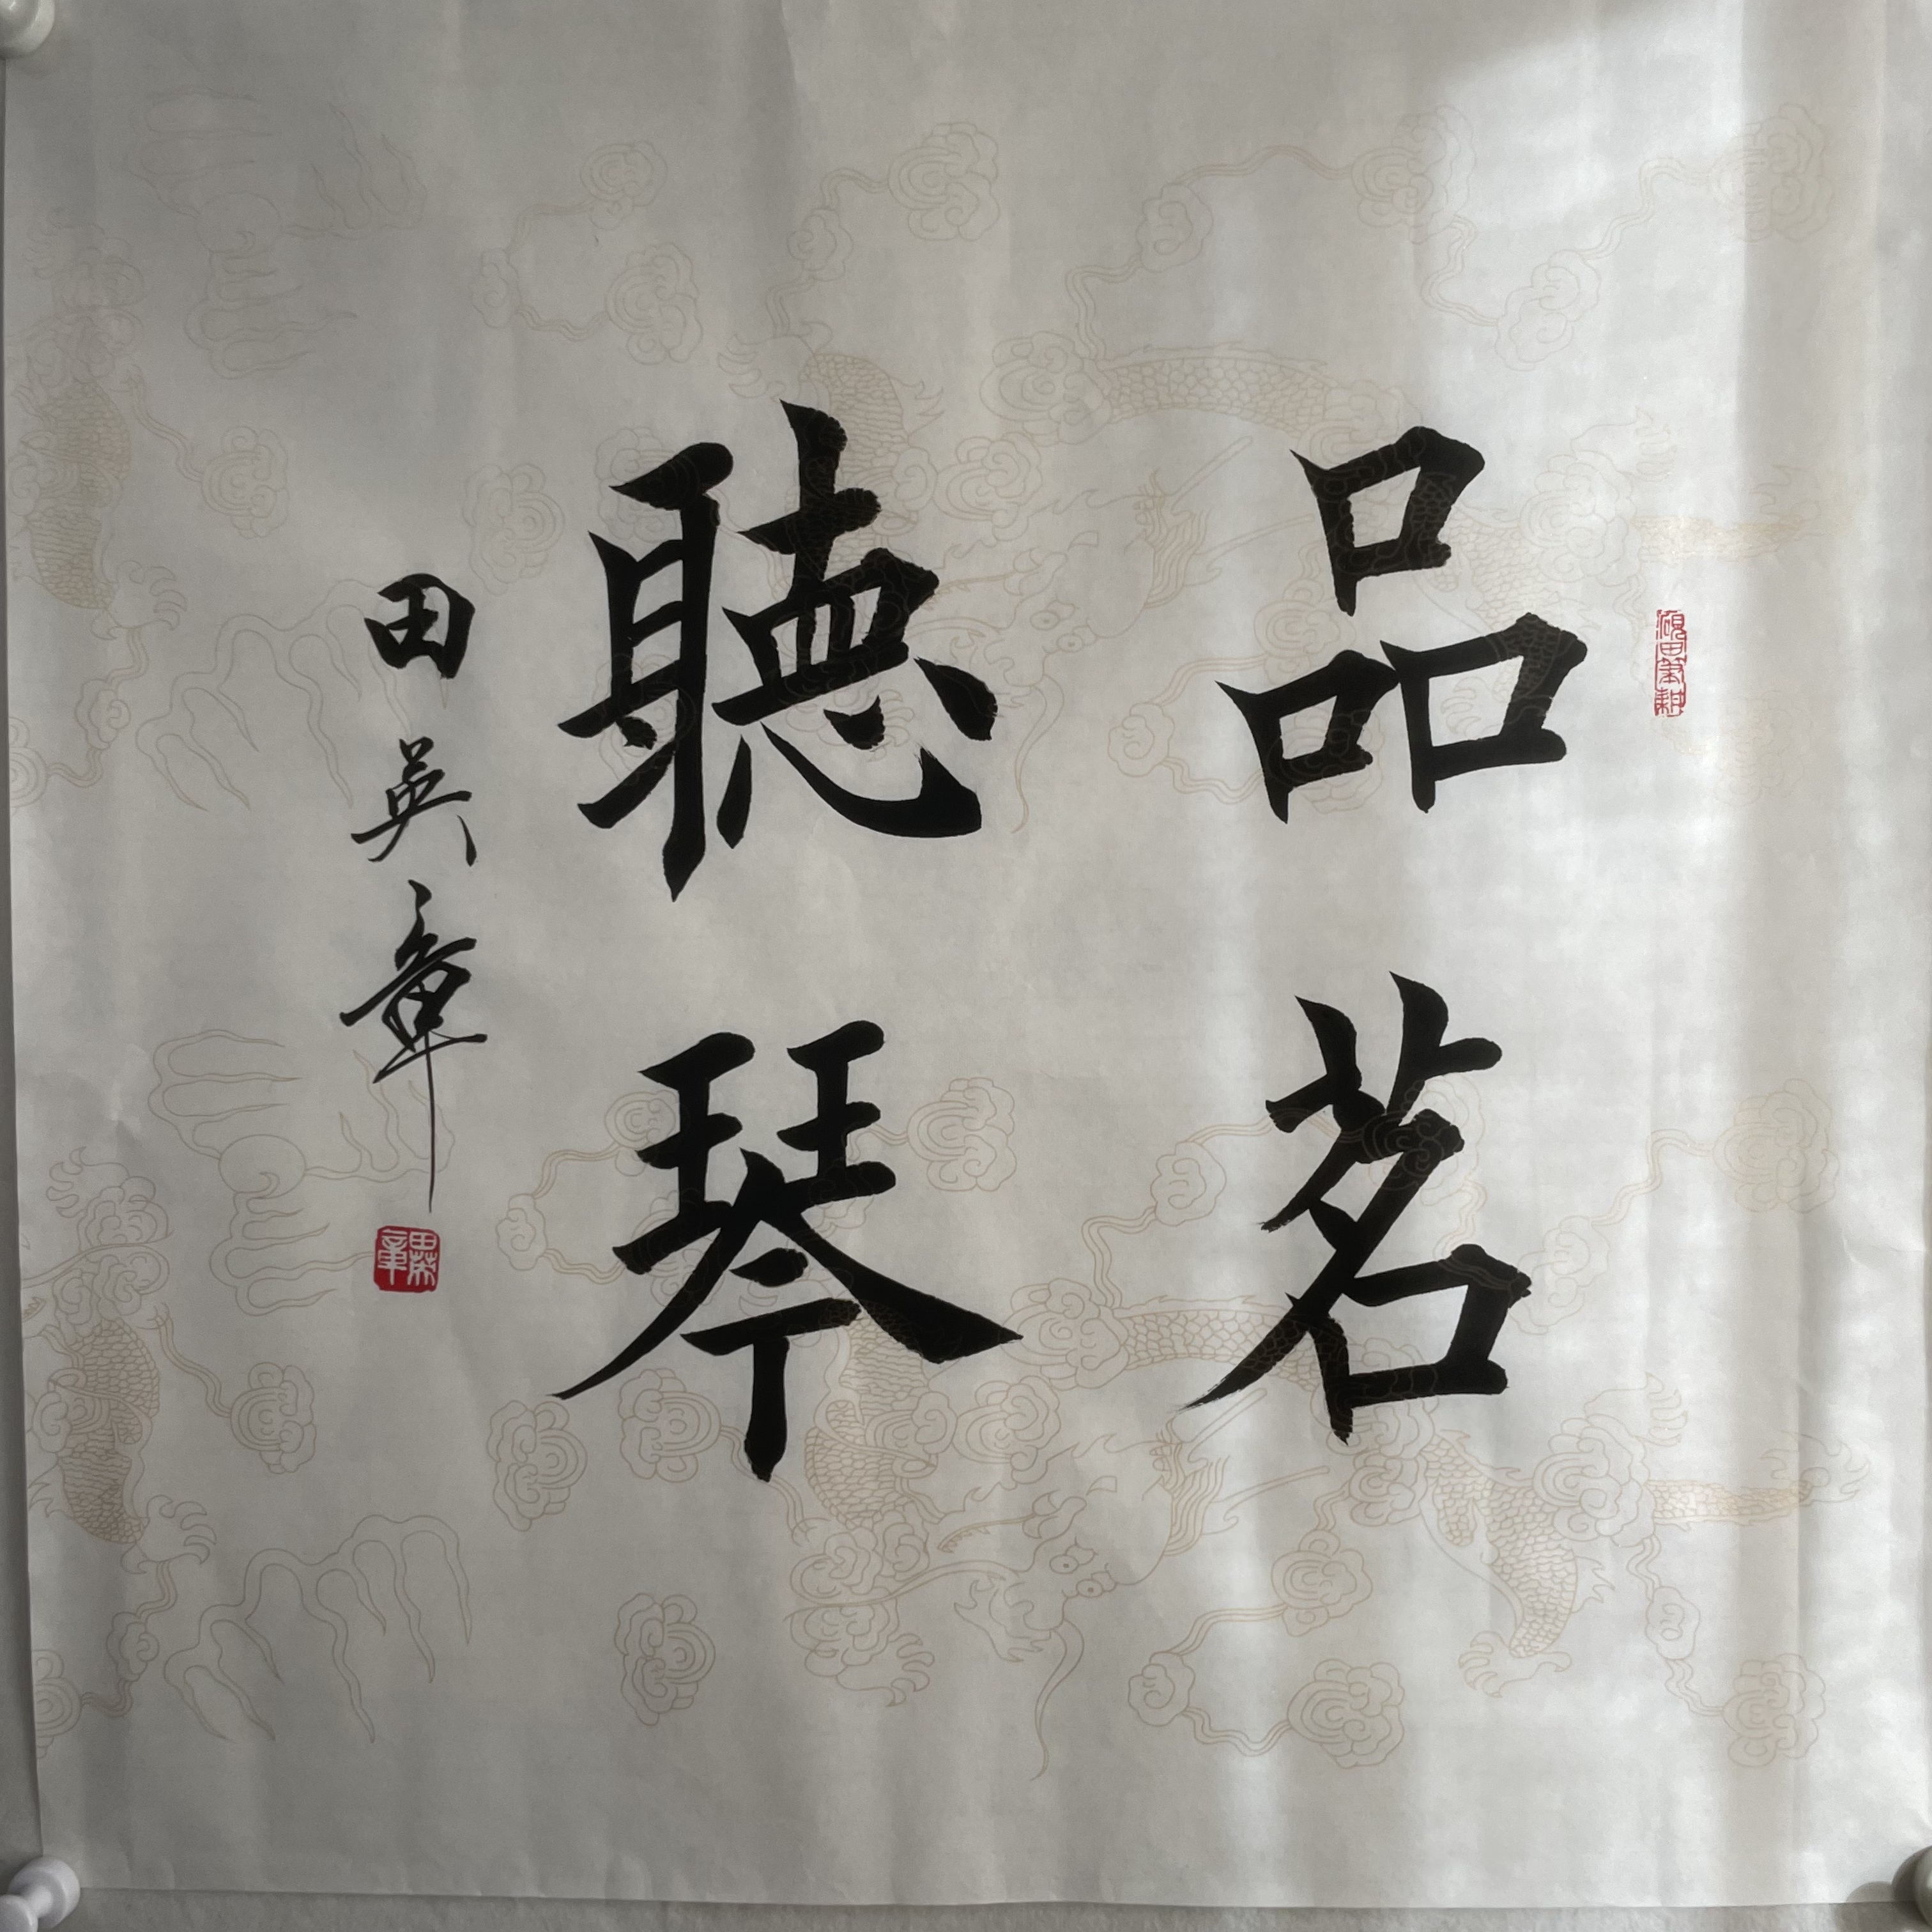 品茗
聽琴
田英章